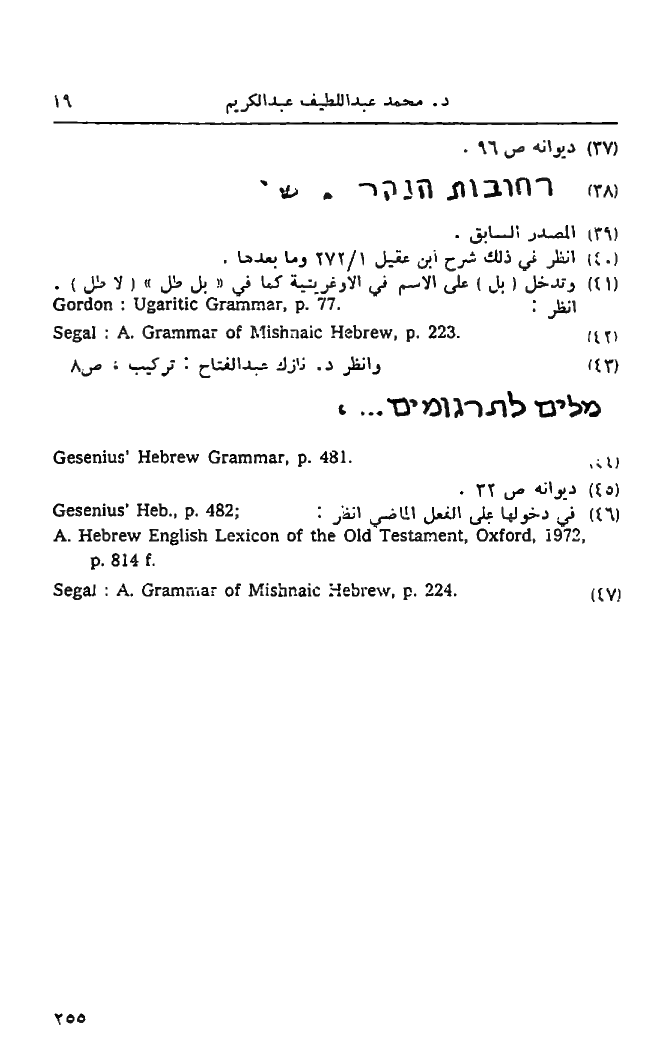 د. محمد عبداللطيف عبدالكريم ١٩
(٣٧) ديوانه ص ٩٦ .
(٣٨) רחובות הנקר . ש'
(٣٩) المصدر السابق .
(٤٠) انظر في ذلك شرح ابن عقيل ١/٢٧٢ وما بعدها .
(٤١) وتدخل ( بل ) على الاسم في الاوغريتية كما في « بل طل » ( لا طل ) .
انظر : Gordon : Ugaritic Grammar, p. 77.
(٤٢) Segal : A. Grammar of Mishnaic Hebrew, p. 223.
(٤٣) وانظر د. نازك عبدالفتاح : تركيب ، ص٨
מלים לתרגומים... ،
Gesenius' Hebrew Grammar, p. 481.
(٤٥) ديوانه ص ٣٢ .
(٤٦) في دخولها على الفعل الماضي انظر : Gesenius' Heb., p. 482;
A. Hebrew English Lexicon of the Old Testament, Oxford, 1972,
p. 814 f.
(٤٧) Segal : A. Grammar of Mishnaic Hebrew, p. 224.
٢٥٥